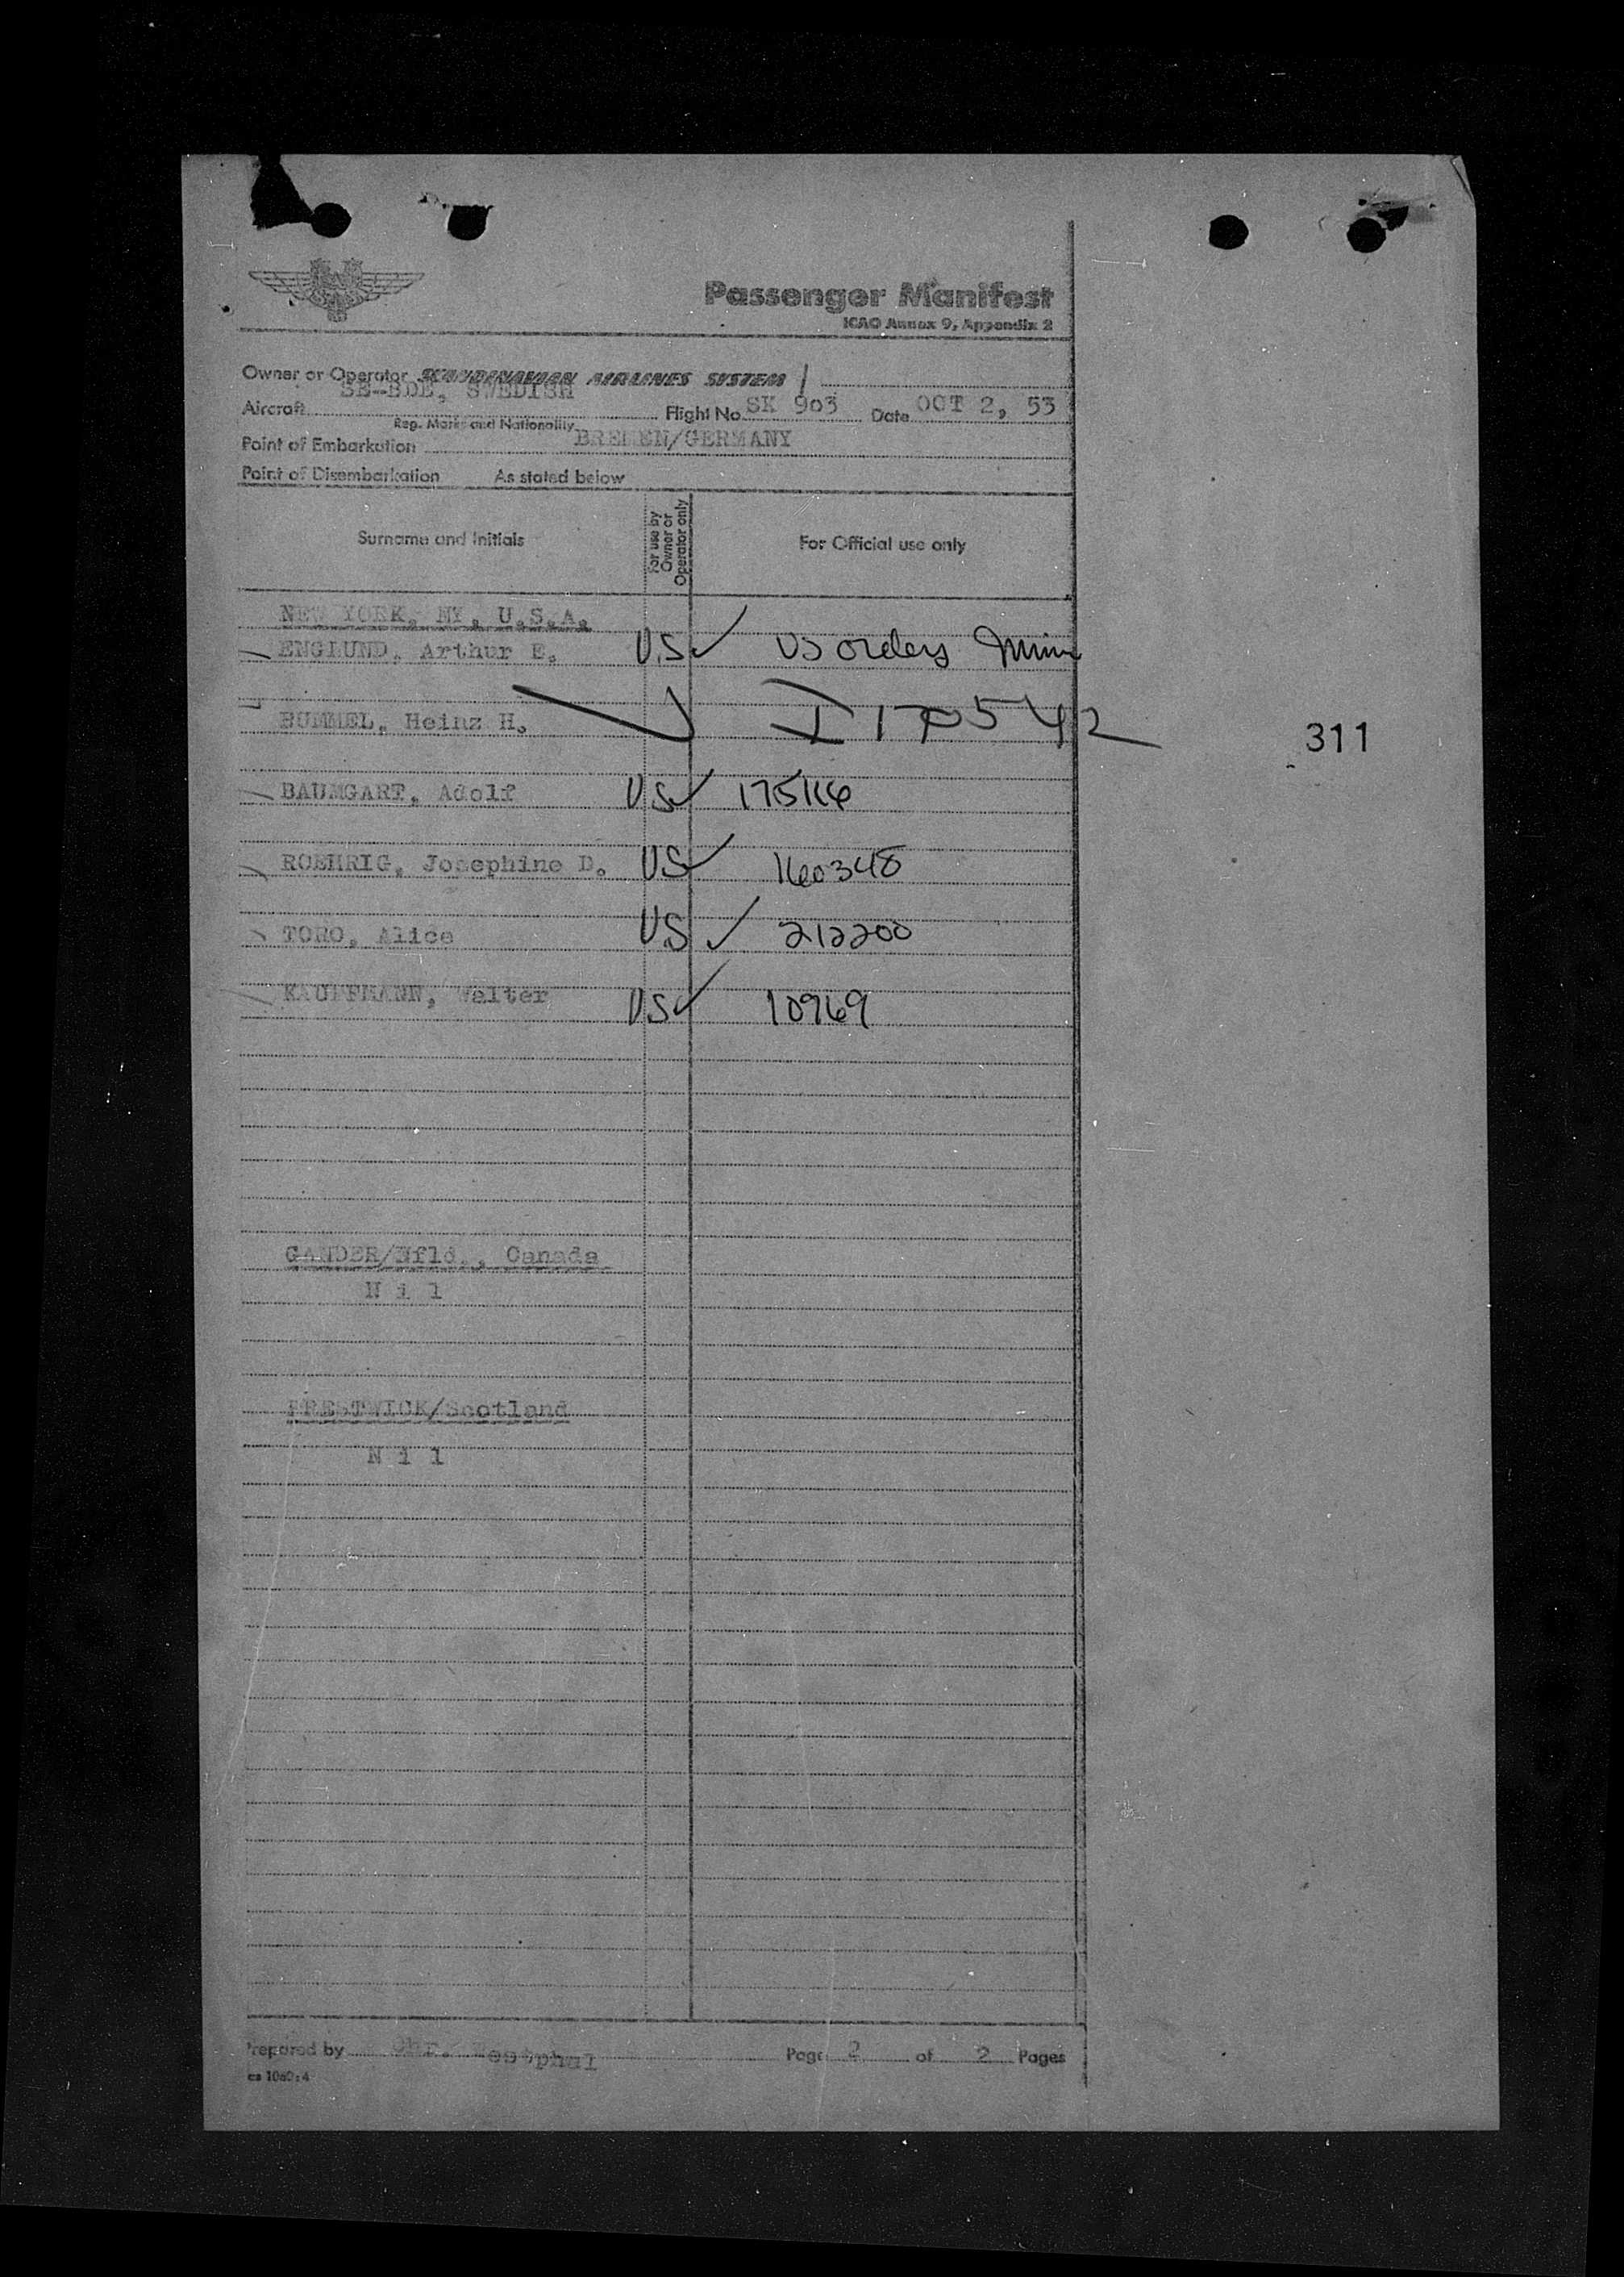 Passenger Manifest
ICAO Annex 9, Appendix 2
Owner or Operator SCANDINAVIAN AIRLINES SYSTEM
Aircraft SE-BDE, SWEDISH Flight No. SK 903 Date OCT 2, 53
Reg. Marks and Nationality
Point of Embarkation BREMEN/GERMANY
Point of Disembarkation As stated below
Surname and Initials For use by Owner or Operator only For Official use only
NEW YORK, NY, U.S.A.
ENGLUND, Arthur E. U.S ✓ US orders
BUMMEL, Heinz H. I 170542
311
BAUMGART, Adolf U.S ✓ 175116
ROEHRIG, Josephine D. US ✓ 160348
TORO, Alice U.S ✓ 212200
KAUFFMANN, Walter U.S ✓ 10969
GANDER/Nfld., Canada
N i l
PRESTWICK/Scotland
N i l
Prepared by Chr. Westphal Page 2 of 2 Pages